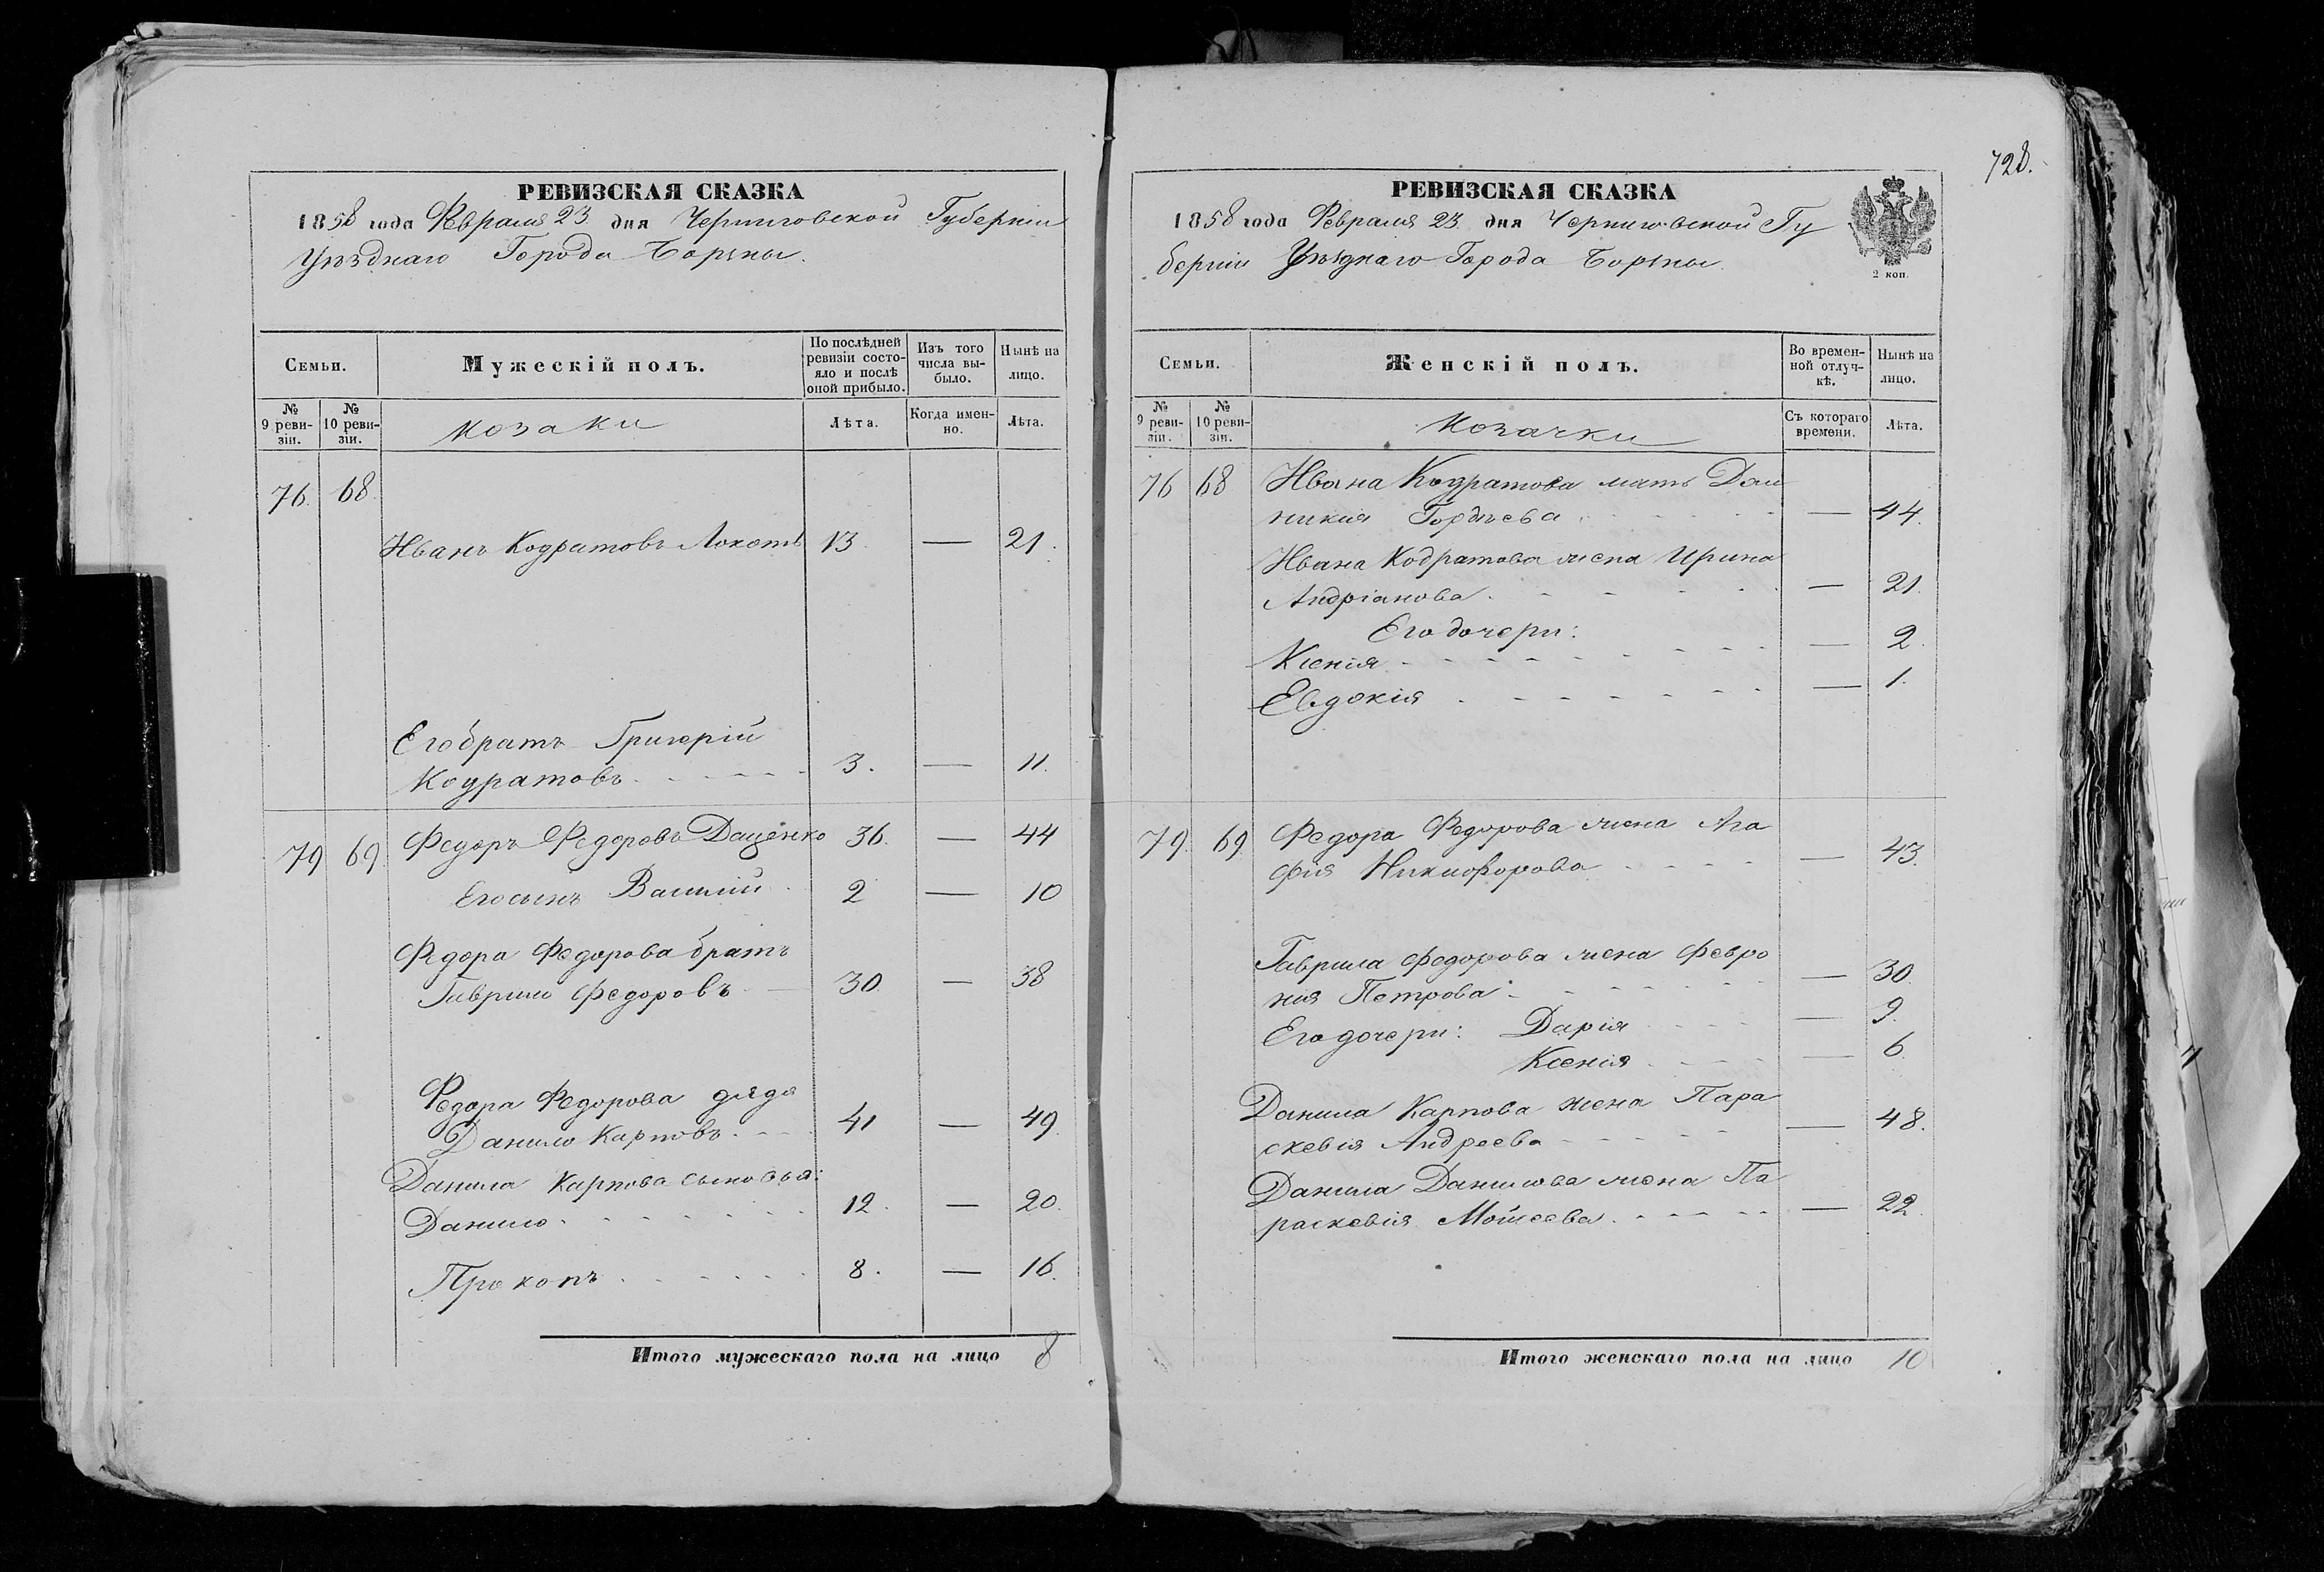 РЕВИЗСКАЯ СКАЗКА
1858 года Февраля 23 дня Черниговской Губерніи
Уѣзднаго Города Борзны.
Семьи.
Мужескій полъ.
По послѣдней ревизіи состояло и послѣ оной прибыло.
Изъ того числа выбыло.
Нынѣ на лицо.
№ 9 ревизіи.
№ 10 ревизіи.
козаки
Лѣта.
Когда именно.
Лѣта.
76. 68.
Иванъ Кодратовъ Локоть 13. — 21.
Его братъ Григорій
Кодратовъ 3. — 11.
79 69. Федоръ Федоровъ Даценко 36. — 44
Его сынъ Василій 2 — 10
Федора Федорова братъ
Гаврило Федоровъ 30 — 38
Федора Федорова дядя
Данило Карповъ 41 — 49.
Данила Карпова сыновья:
Данило 12. — 20.
Прокопъ 8. — 16.
Итого мужескаго пола на лицо 8
728.
РЕВИЗСКАЯ СКАЗКА
1858 года Февраля 23 дня Черниговской Гу
берніи Уѣзднаго Города Борзны.
2 коп.
Семьи.
Женскій полъ.
Во временной отлучкѣ.
Нынѣ на лицо.
№ 9 ревизіи.
№ 10 ревизіи.
козачки
Съ котораго времени.
Лѣта.
76 68 Ивана Кодратова мать Дом
никия Гордѣева — 44.
Ивана Кодратова жена Ирина
Андріанова — 21.
Его дочери:
Ксенія — 2.
Евдокія — 1.
79. 69. Федора Федорова жена Ага
фия Никифорова — 43.
Гаврила Федорова жена Февро
ния Петрова — 30.
Его дочери: Дарія — 9.
Ксенія — 6.
Данила Карпова жена Пара
скевія Андреева — 48.
Данила Данилова жена Па
раскевія Мойсеева — 22.
Итого женскаго пола на лицо 10